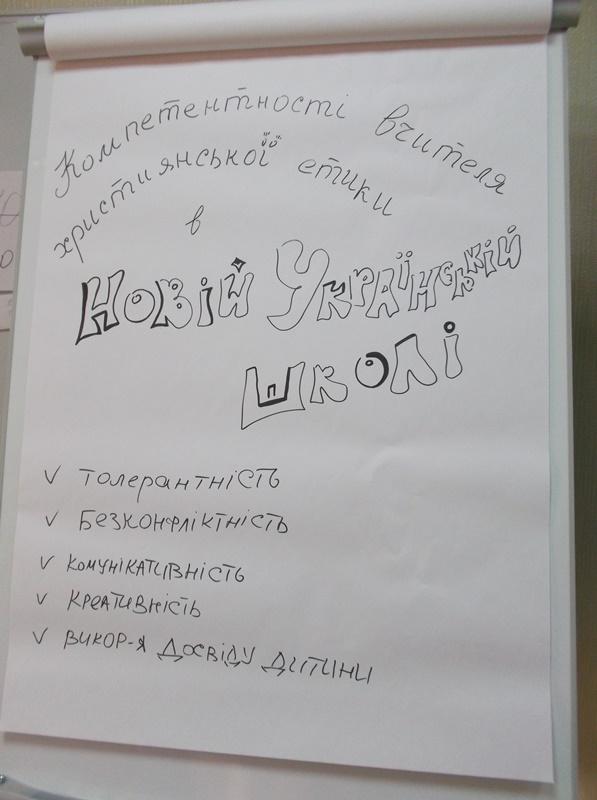 Компетентності вчителя
християнської етики
в
Новій Українській
школі
✓ толерантність
✓ Безконфліктність
✓ комунікативність
✓ креативність
✓ викор-я досвіду дитини